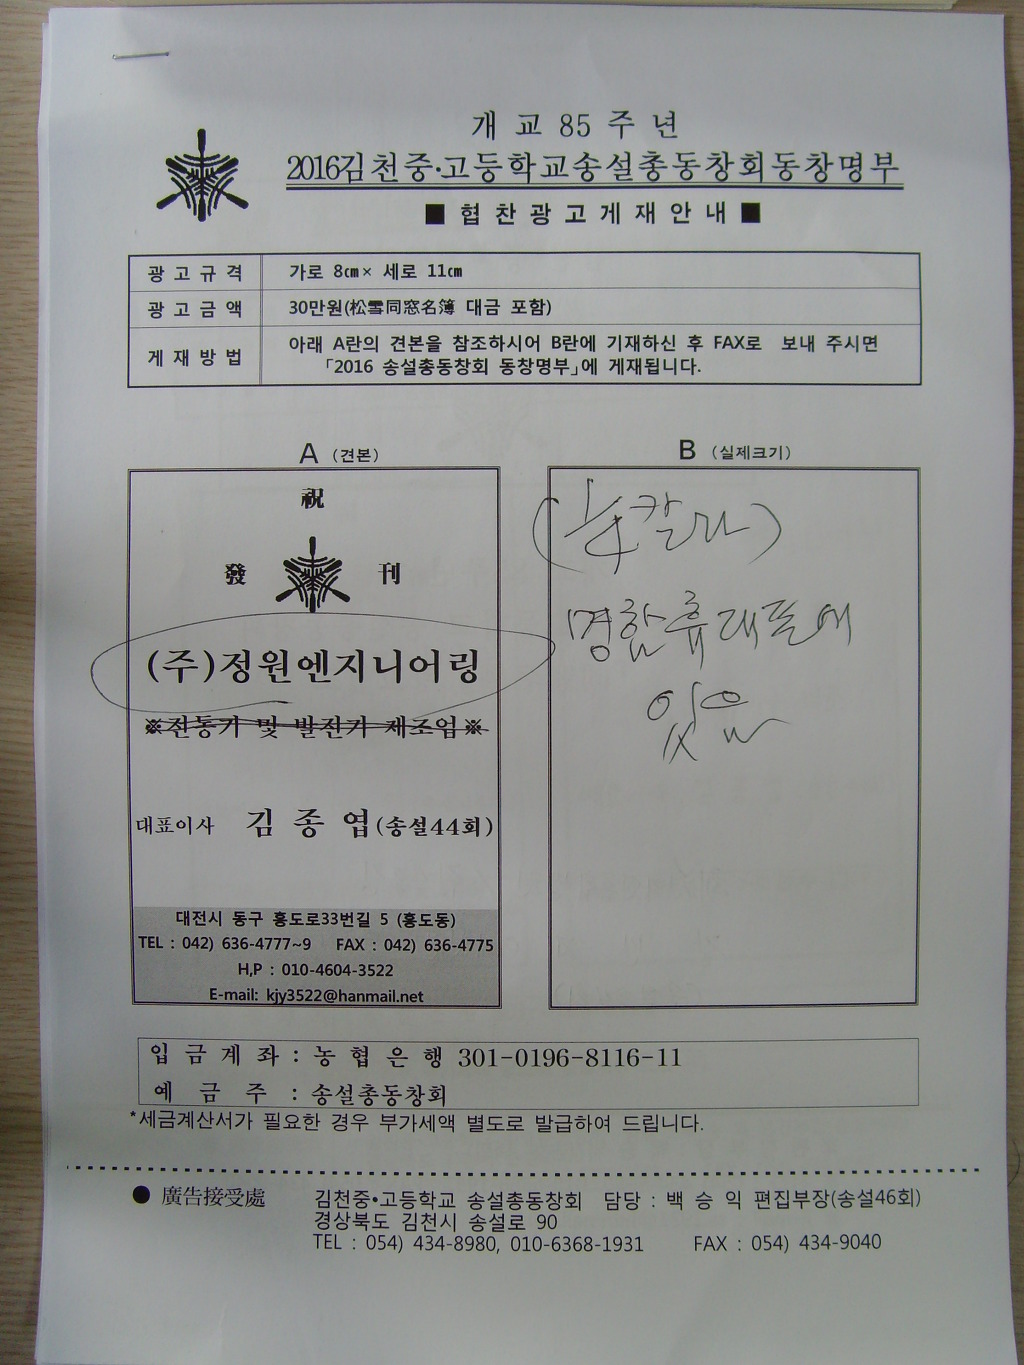 개 교 85 주 년
2016김천중·고등학교송설총동창회동창명부
■ 협 찬 광 고 게 재 안 내 ■
광 고 규 격 가로 8㎝× 세로 11㎝
광 고 금 액 30만원(松雪同窓名簿 대금 포함)
게 재 방 법 아래 A란의 견본을 참조하시어 B란에 기재하신 후 FAX로 보내 주시면
「2016 송설총동창회 동창명부」에 게재됩니다.
A (견본)
祝
發 刊
(주)정원엔지니어링
※전동기 및 발전기 제조업※
대표이사 김 종 엽(송설44회)
대전시 동구 홍도로33번길 5 (홍도동)
TEL : 042) 636-4777~9 FAX : 042) 636-4775
H,P : 010-4604-3522
E-mail: kjy3522@hanmail.net
B (실제크기)
(1/4칼라)
명함휴대폰에
있음
입 금 계 좌 : 농 협 은 행 301-0196-8116-11
예 금 주 : 송설총동창회
*세금계산서가 필요한 경우 부가세액 별도로 발급하여 드립니다.
● 廣告接受處 김천중•고등학교 송설총동창회 담당 : 백 승 익 편집부장(송설46회)
경상북도 김천시 송설로 90
TEL : 054) 434-8980, 010-6368-1931 FAX : 054) 434-9040